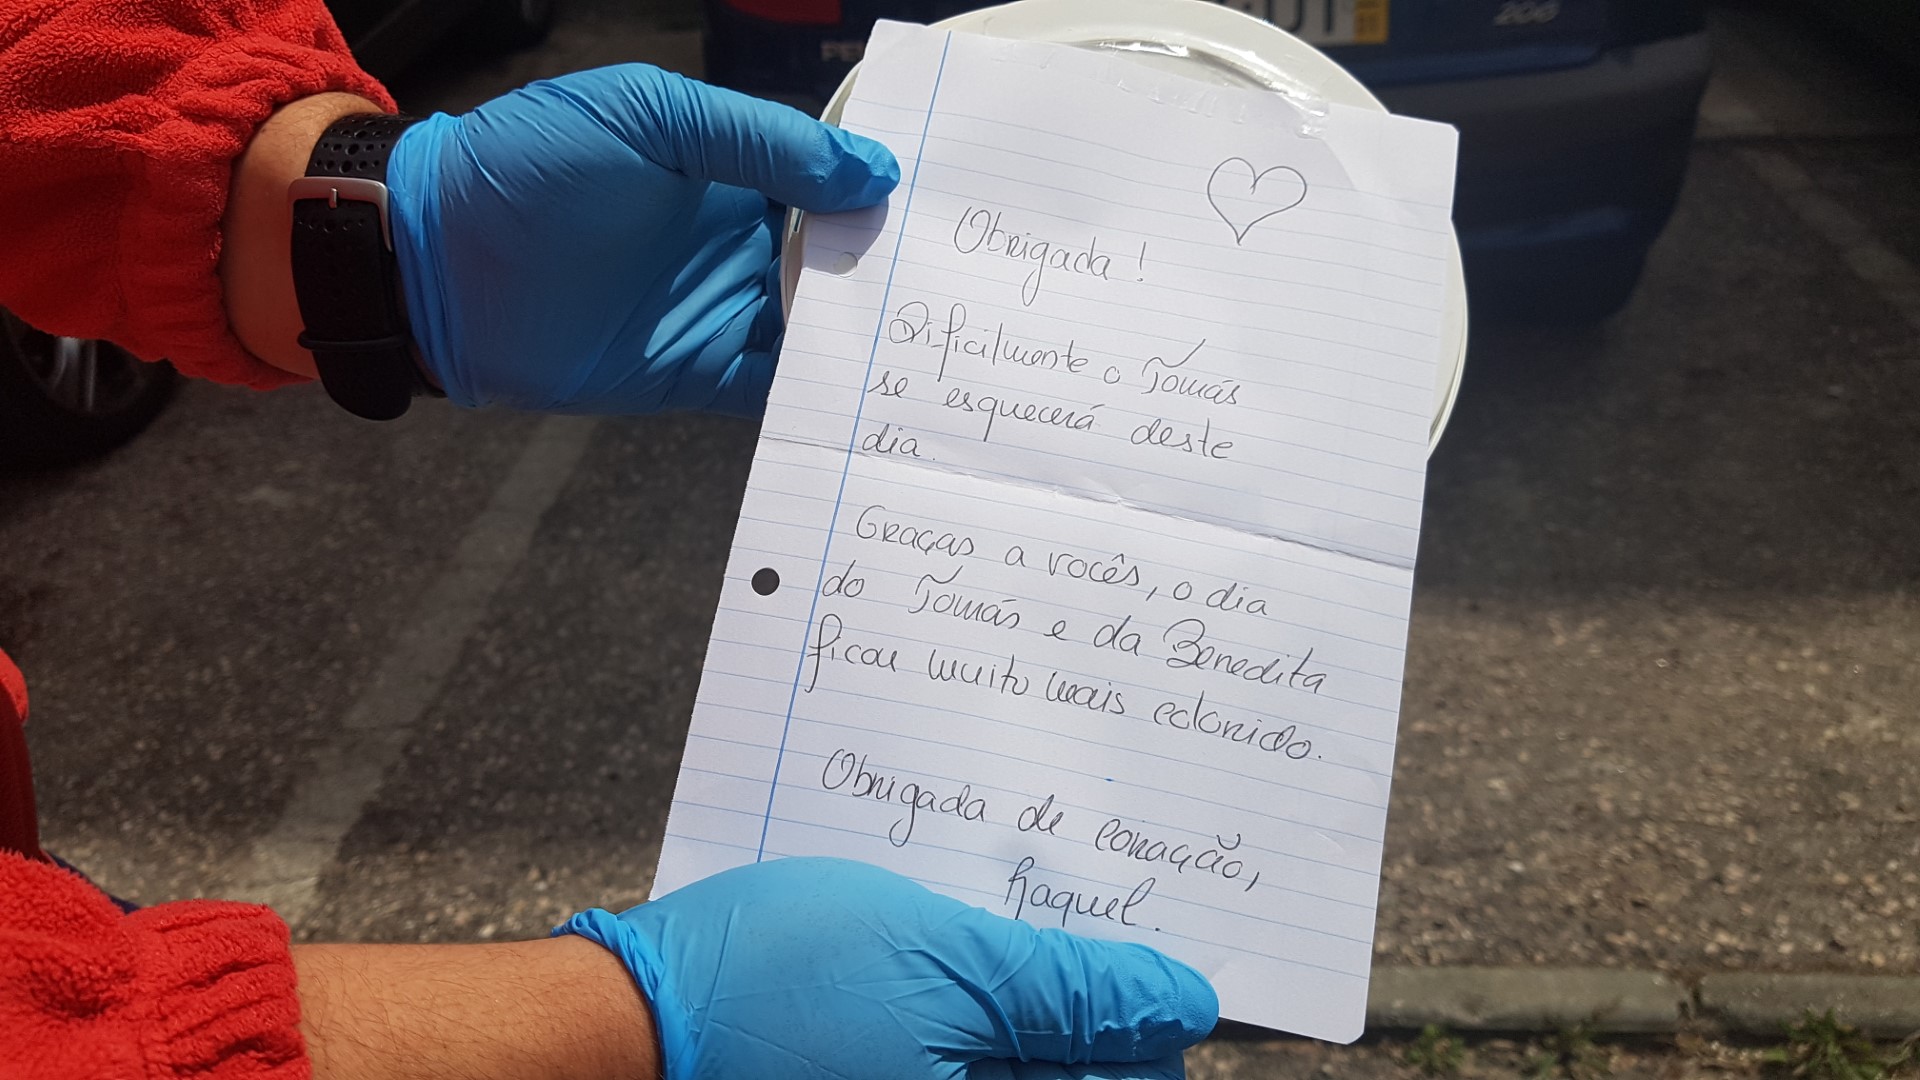 206
Obrigada!
Dificilmente o Tomás
se esquecerá deste
dia.
Graças a vocês, o dia
do Tomás e da Benedita
ficou muito mais colorido.
Obrigada de coração,
Raquel.